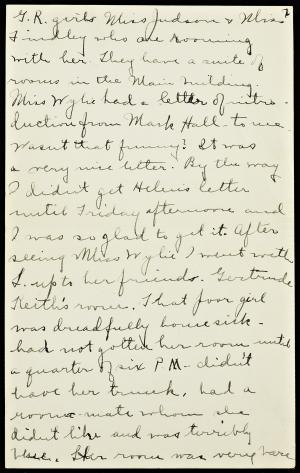 2
G.R. girls Miss Judson & Miss
Findley who are rooming
with her. They have a suite of
rooms in the Main building.
Miss Wylie had a letter of intro-
duction from Mark Hall - to me.
Wasn't that funny? It was
a very nice letter. By the way
I didn't get Helen's letter
until Friday afternoon and
I was so glad to get it. After
seeing Miss Wylie I went with
S. up to her friends. Gertrude
Keith's room. That poor girl
was dreadfully homesick -
had not gotten her room until
a quarter of six P.M - didn't
have her trunk, had a
room-mate whom she
didn't like and was terribly
blue. Her room was very bare